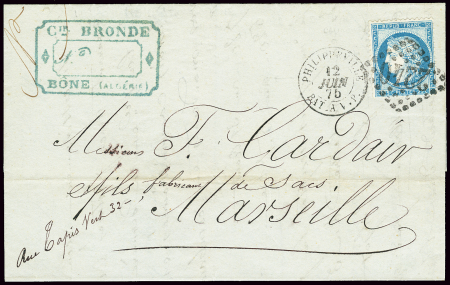 Cᴛᴇ BRONDE
BONE (ALGÉRIE)
PHILIPPEVILLE
12
JUIN
75
BAT. A. V.
REPUB. FRANC.
Messieurs F. Cardair
& fils, fabricants de sacs
Marseille
Rue Tapis Vert 32